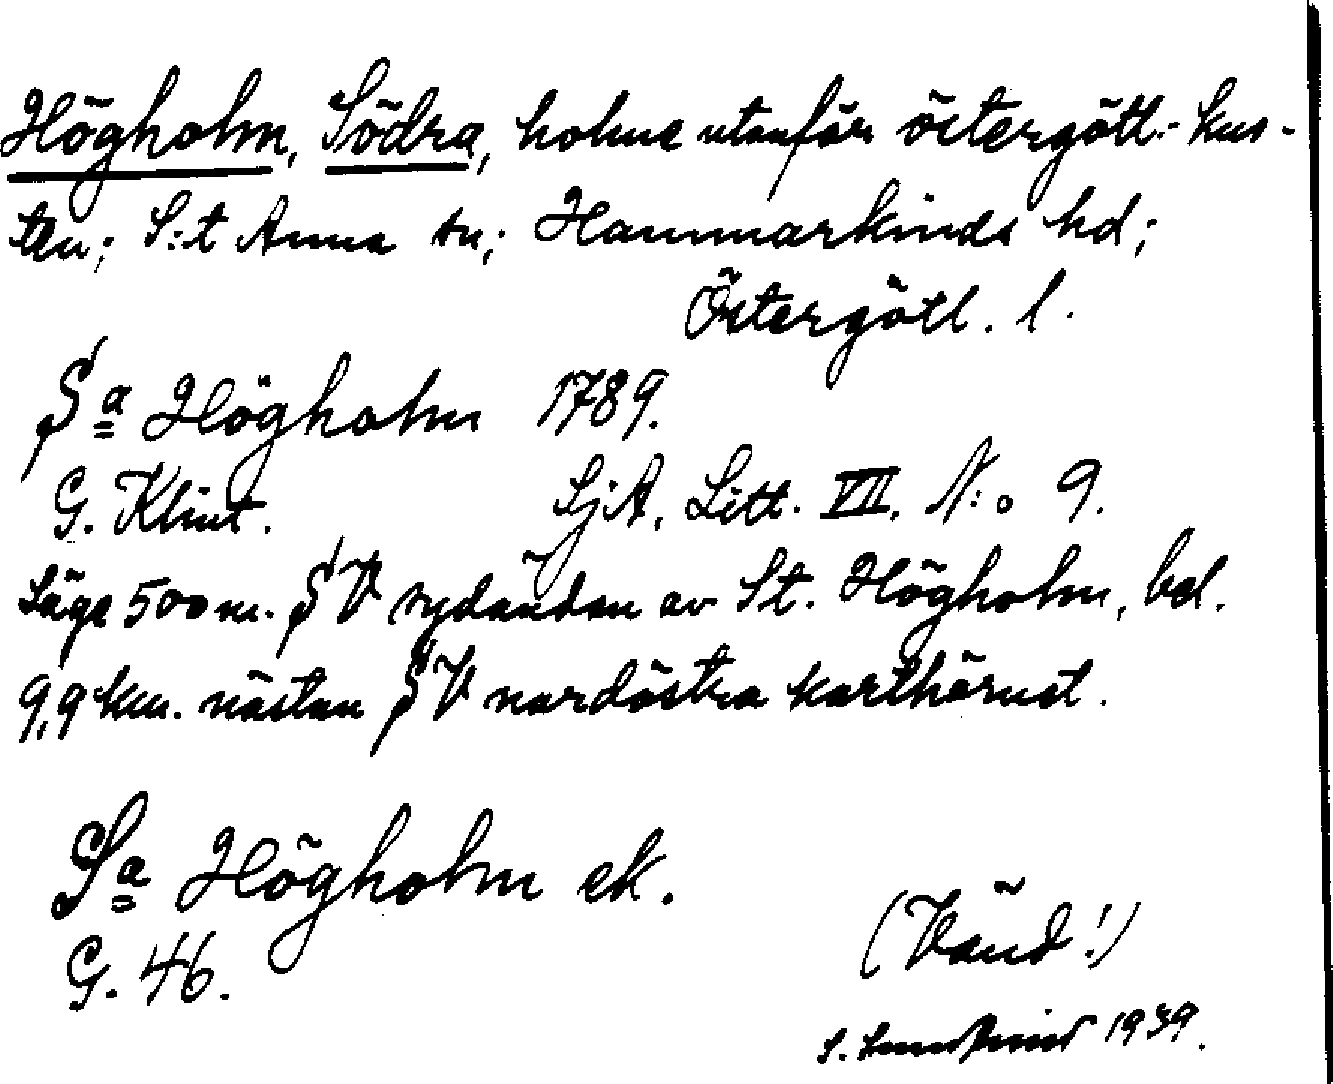 Högholm, Södra, holme utanför östergötl.-kus-
ten; S:t Anna sn; Hammarkinds hd;
Östergötl. l.
Sa Högholm 1789.
G. Klint. SjA. Litt. VII. N:o 9.
Läge 500 m. SV sydändan av St. Högholm, bel.
9,9 km. nästan SV nordöstra karthörnet.
Sa Högholm ek.
G. 46.
(Vänd!)
S. 1939.